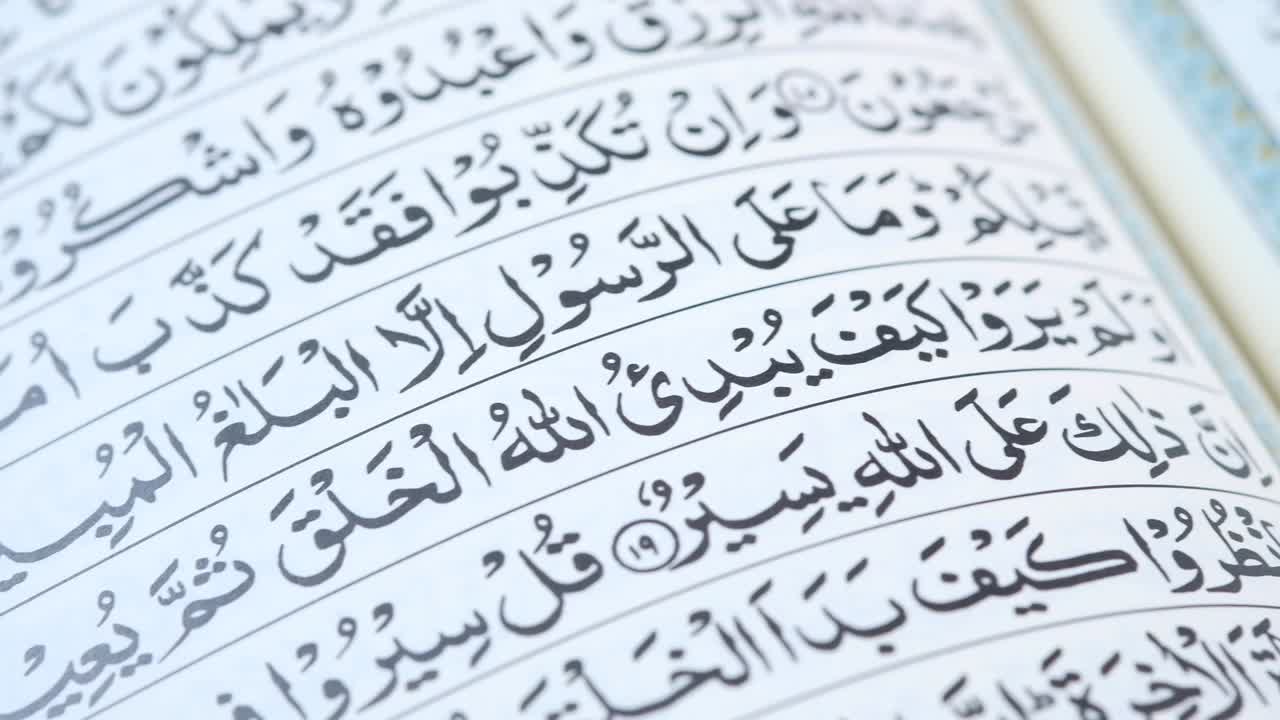 يَمْلِكُوْنَ لَكُمْ
الرِّزْقَ وَاعْبُدُوْهُ وَاشْكُرُوْا
تُرْجَعُوْنَ ۝١٧ وَاِنْ تُكَذِّبُوْا فَقَدْ كَذَّبَ اُمَ
قَبْلِكُمْ ؕ وَمَا عَلَى الرَّسُوْلِ اِلَّا الْبَلٰغُ الْمُبِيْ
اَوَلَمْ يَرَوْا كَيْفَ يُبْدِئُ اللّٰهُ الْخَلْقَ ثُمَّ يُعِيْ
اِنَّ ذٰلِكَ عَلَى اللّٰهِ يَسِيْرٌ ۝١٩ قُلْ سِيْرُوْا فِ
فَانْظُرُوْا كَيْفَ بَدَاَ الْخَلْقَ
الْاٰخِرَةَ ؕ